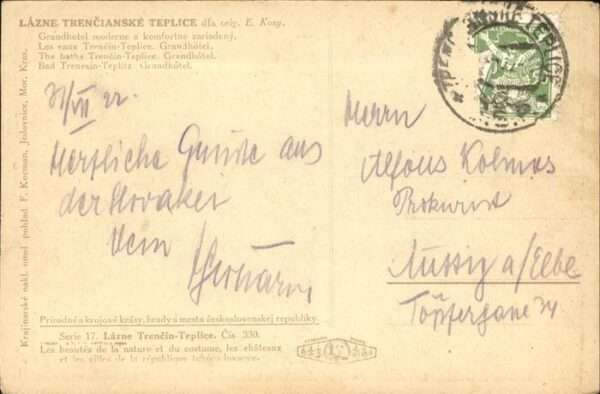 LÁZNE TRENČIANSKÉ TEPLICE dľa orig. E. Kosy.
Grandhotel moderne a komfortne zariadený.
Les eaux Trenčín-Teplice. Grandhôtel.
The baths Trenčín-Teplice. Grandhôtel.
Bad Trencsin-Teplitz Grandhôtel.
Krajinárske nakl. umel pohľad F. Kocman, Jedovnice, Mor. Kras.
Herzliche Grüße aus
der Slovakei
Dein
Herrn
Alfons Kolmas
Prokurist
Aussig a/Elbe
Töpfergasse 34
Prírodné a krajové krásy, hrady a mesta československej republiky
Serie 17. Lázne Trenčín-Teplice. Čís 330.
Les beautés de la nature et du costume, les châteaux
et les villes de la république tchéco-